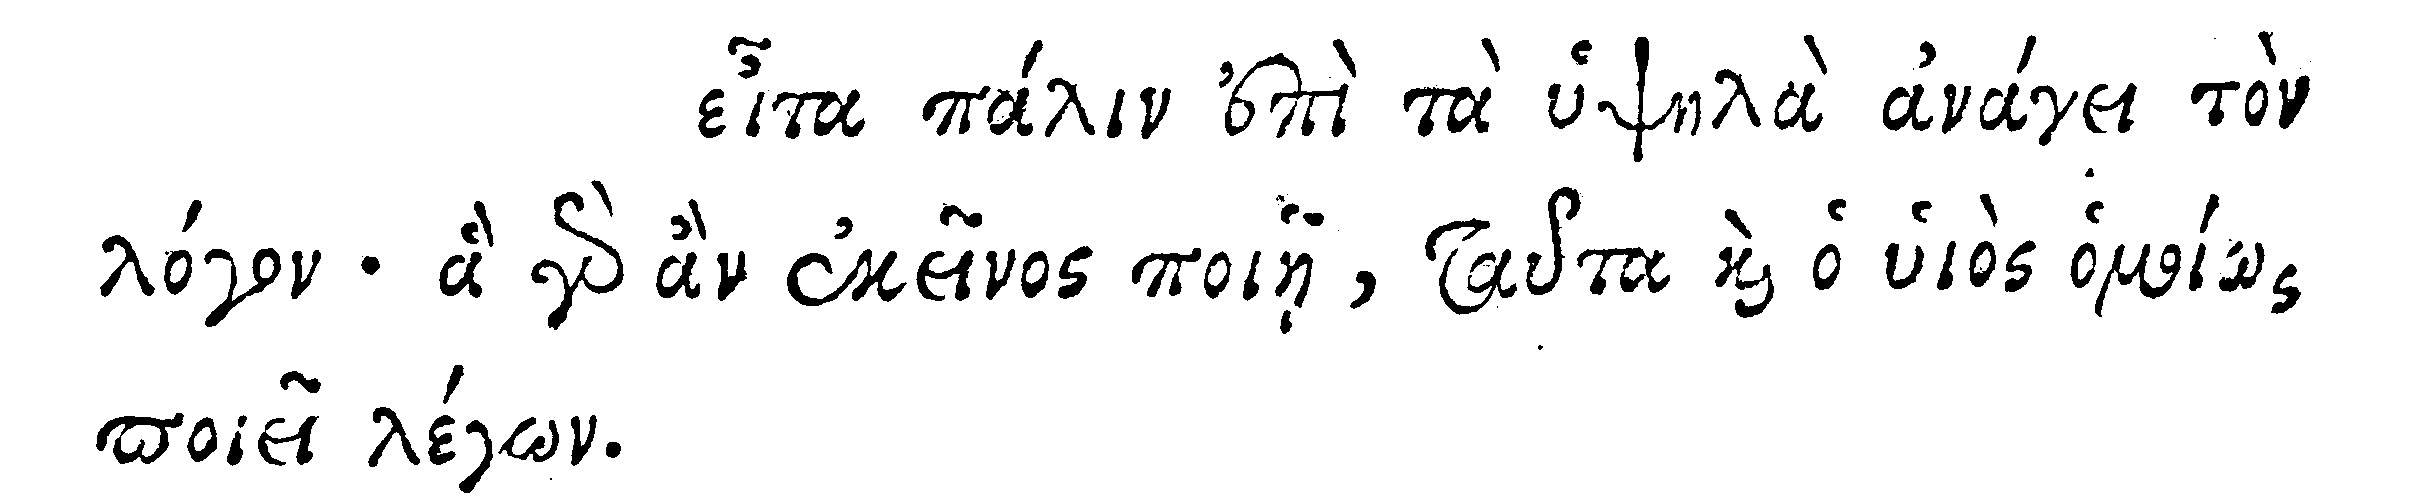 εἶτα πάλιν ἐπὶ τὰ ὑψηλὰ ἀνάγει τὸν
λόγον · ἃ γὰρ ἂν ἐκεῖνος ποιῇ, ταῦτα καὶ ὁ υἱὸς ὁμοίως
ποιεῖ λέγων.